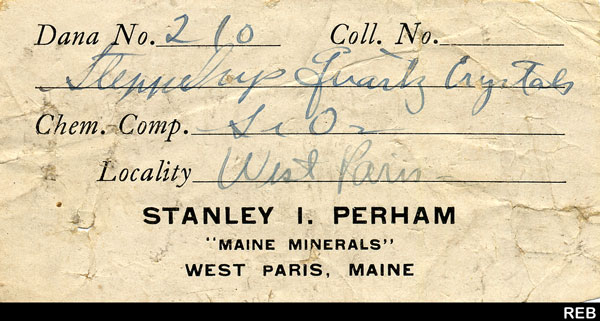 Dana No. 210 Coll. No.
Quartz Crystals
Chem. Comp. SiO2
Locality West Paris
STANLEY I. PERHAM
"MAINE MINERALS"
WEST PARIS, MAINE
REB